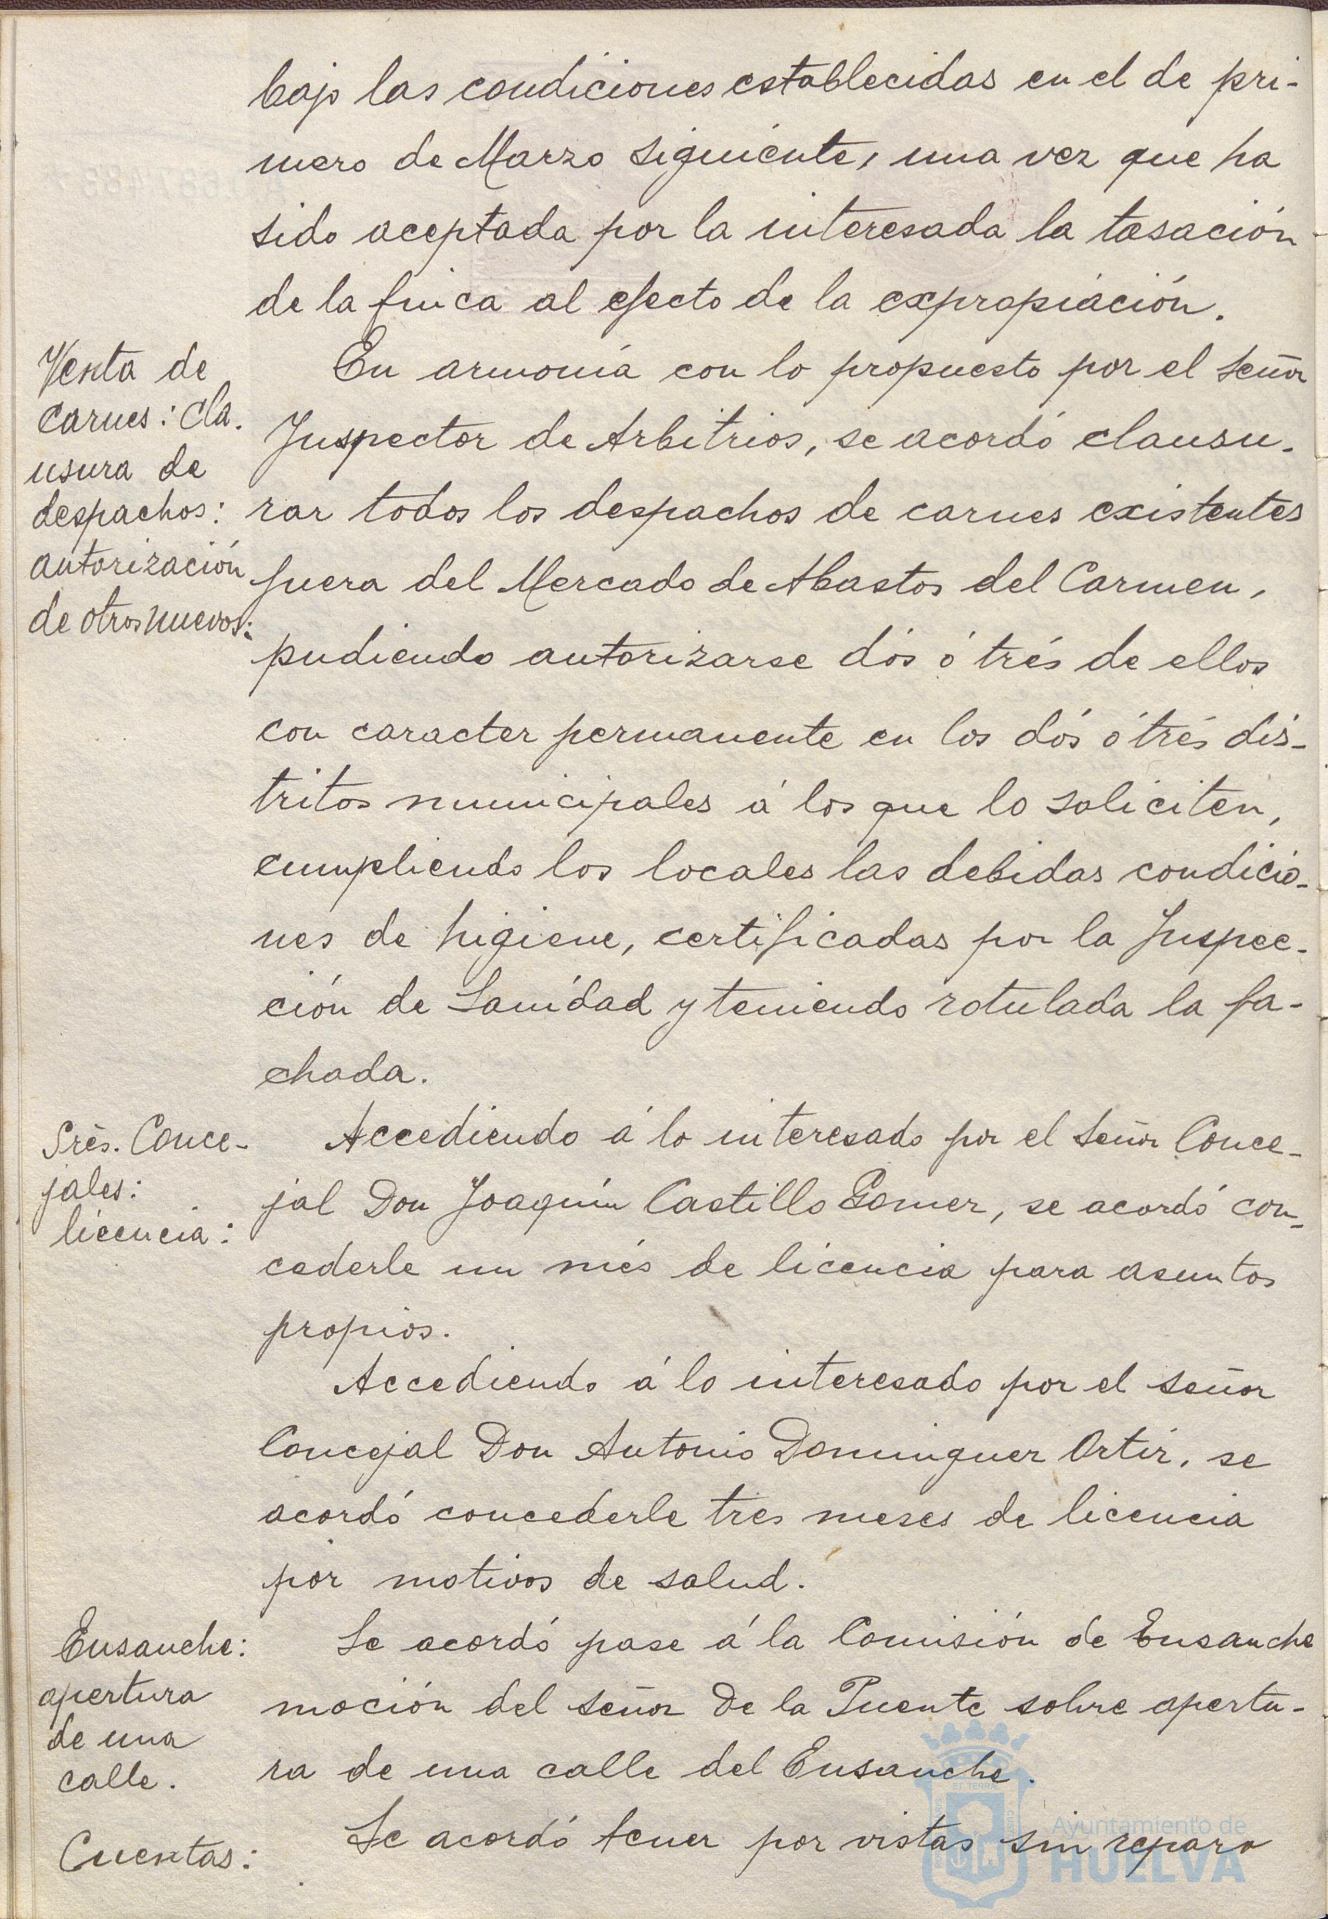 bajo las condiciones establecidas en el de pri-
mero de Marzo siguiente, una vez que ha
sido aceptada por la interesada la tasación
de la finca al efecto de la expropiación.
Venta de
carnes: cla-
usura de
despachos:
autorización
de otros nuevos:
En armonía con lo propuesto por el señor
Inspector de Arbitrios, se acordó clausu-
rar todos los despachos de carnes existentes
fuera del Mercado de Abastos del Carmen,
pudiendo autorizarse dós ó trés de ellos
con caracter permanente en los dós ó trés dis-
tritos municipales á los que lo soliciten,
cumpliendo los locales las debidas condicio-
nes de higiene, certificadas por la Inspec-
ción de Sanidad y teniendo rotulada la fa-
chada.
Srés. Conce-
jales:
licencia:
Accediendo á lo interesado por el Señor Conce-
jal Don Joaquín Castillo Gomez, se acordó con-
cederle un més de licencia para asuntos
propios.
Accediendo á lo interesado por el señor
Concejal Don Antonio Dominguez Ortiz, se
acordó concederle tres meses de licencia
por motivos de salud.
Ensanche:
apertura
de una
calle.
Se acordó pase á la Comisión de Ensanche
moción del señor De la Puente sobre apertu-
ra de una calle del Ensanche.
Cuentas:
Se acordó tener por vistas sin reparo
Ayuntamiento de
HUELVA